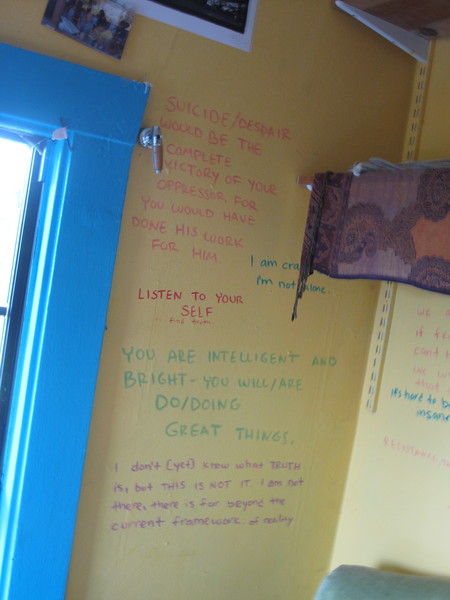 SUICIDE/DESPAIR
WOULD BE THE
COMPLETE
VICTORY OF YOUR
OPPRESSOR FOR
YOU WOULD HAVE
DONE HIS WORK
FOR HIM.
I am cra
i'm not alone.
LISTEN TO YOUR
SELF
YOU ARE INTELLIGENT AND
BRIGHT - YOU WILL/ARE
DO/DOING
GREAT THINGS.
I don't (yet) know what TRUTH
is, but THIS IS NOT IT. I am not
there, there is far beyond the
current framework of reality
if
can't
that
it's hard to b